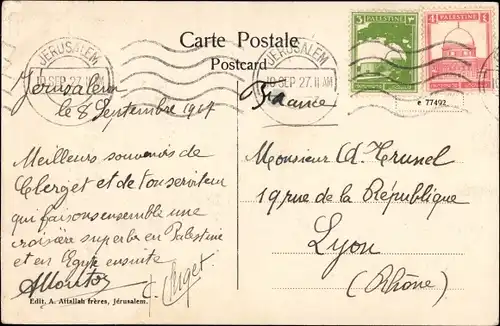 Carte Postale
Postcard
JERUSALEM
10 SEP. 27. 11 AM
JERUSALEM
10 SEP. 27. 11 AM
PALESTINE
3
PALESTINE
4
e 77492
Jerusalem
le 8 Septembre 1927
France
Meilleurs souvenirs de
Clerget et de ton serviteur
qui faisons ensemble une
croisière superbe en Palestine
et en Egypte ensuite
C. Clerget
Monsieur Trunel
19 rue de la République
Lyon
(Rhône)
Edit. A. Attallah frères, Jérusalem.